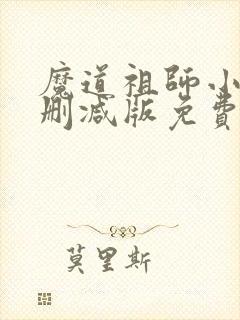 魔道祖師小
刪減版免費
莫里斯